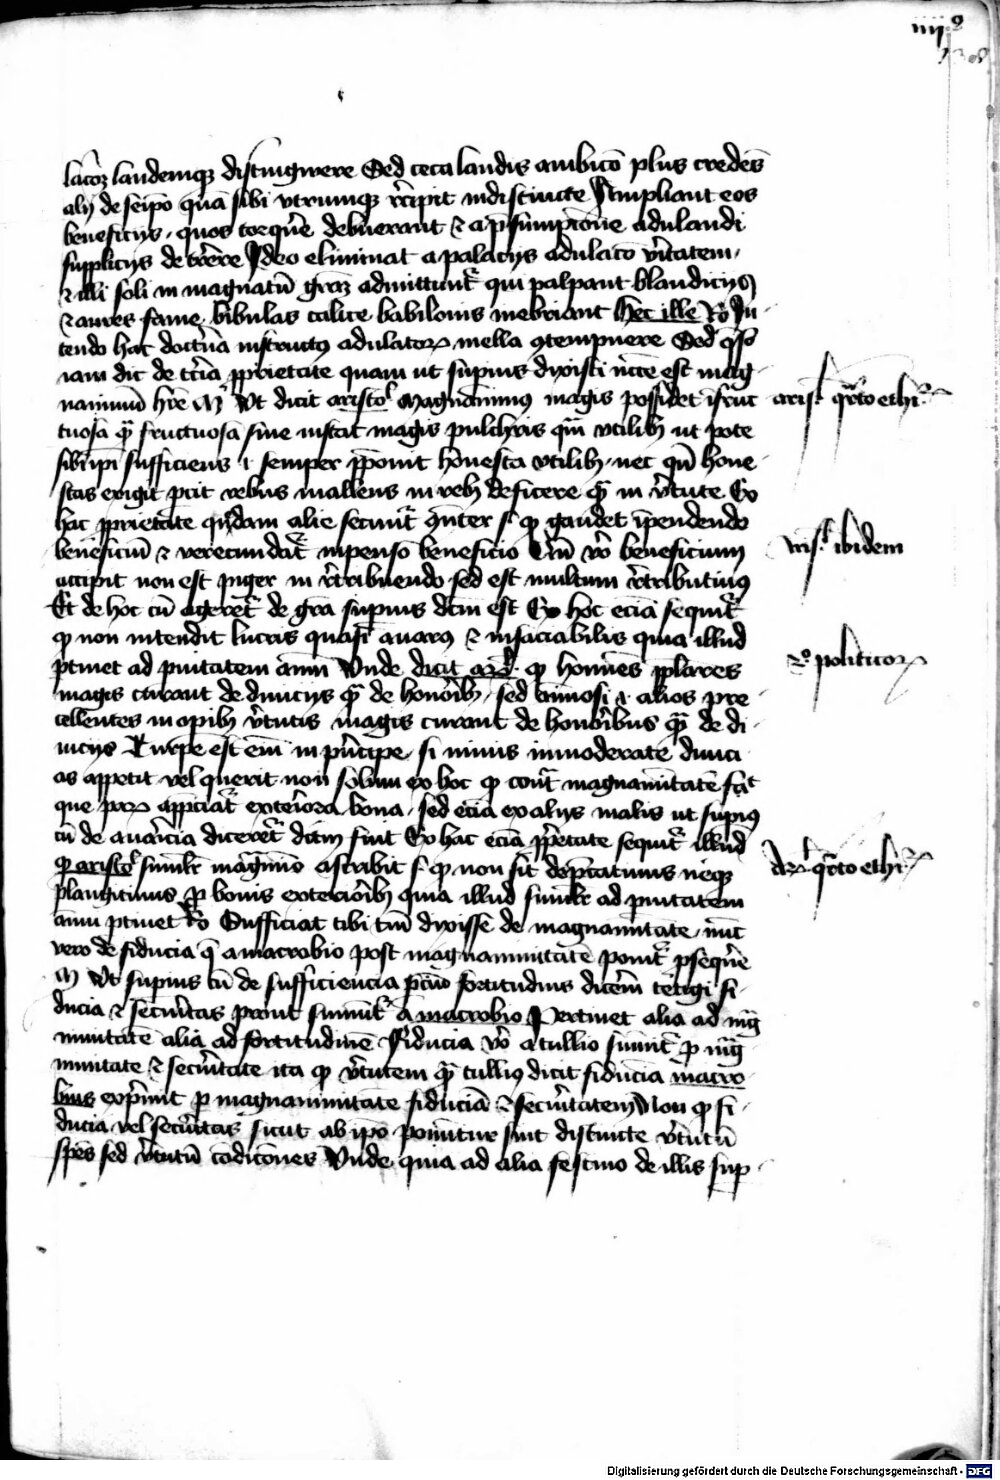 iiij⁹
138
lac̄oꝫ laudemqꝫ distingwere Sed ceca laudis ambic̄o plus credēs
alijs de seip̄o quā sibi vtrumqꝫ rec̄ipit indistincte Ampliant eos
beneficijs quos torquēre debuerant ⁊ a p̄sumpc̄one adulandi
supplicijs det̄rere Ideo eliminat a palacijs adulac̄o v̄itatem
⁊ illi soli in magnatū gr̄aꝫ admittunt᷑ qui palpant blandicijs
⁊ aures fame bibulas calice babilonis inebriant Hec ille Ro In
tendo hac doctr̄ia instructus adulatoꝝ mella ꝯtempnere Sed q̄so
iam dic de tēria ꝓprietate quam ut supius dixisti nc̄te est mag
nanimū hr̄e M Vt dicit aristoˡ Magnanimus magis possidet īfruc
tuosa qͣ fructuosa sine instat magis pulchris qͣm vtilibꝫ ut pote
sibiip̄i sufficiens semper p̄ponit honesta vtilibꝫ nec qn̄ hone
stas exigit p̄cit rebus mallens in rebꝫ deficere qͣ in v̄tute Ex
hac ꝓprietate q̄dam alie secunt᷑ ꝯnter sˡ ꝙ gaudet īpendendo
beneficiū ⁊ verecundat᷑ inpenso beneficio Cū v̄o beneficium
accipit non est piger in r̄tribuendo sed est multum r̄tributiuus
Et de hoc cū ageret᷑ de gr̄a supius dc̄m est Ex hoc ecia sequit᷑
ꝙ non intendit lucris quasi auarus ⁊ insaciabilis quia illud
ꝑtinet ad ꝑuitatem animi Vnde dicit arˡ ꝙ homines ꝓplares
magis curant de diuicijs qͣ de honorībꝫ sed animosi ⁊ alios pre
cellentes in opibꝫ v̄tutis magis curant de honoribus qͣ de di
uicijs Turpe est em̄ in pn̄cipe si nimis inmoderate diuici
as appetit vel querit non solum ex hoc ꝙ contͣ magnanimitatē fac̄
que paꝝ app̄ciat᷑ exteriora bona sed ecia ex alijs malis ut supius
cū de auaricia diceret᷑ dictū fuit Ex hac ecia ꝓprietate sequit᷑ illud
qd̄ aristoˡ simulr̄ magnanimo ascribit sˡ ꝙ non sit dep̄catiuus neqꝫ
plangitiuus ꝑ bonis exteriorībꝫ quia illud simulr̄ ad ꝑuitatem
animi ꝑtinet Ro Sufficiat tibi tm̄ dixisse de magnanimitate nūc
vero de fiducia q̄ a macrobio post magnanimitatē ponit᷑ ꝓsequēre
M Vt supius cū de sufficiencia ꝑciū fortitudinis dicerem tetigi fi
ducia ⁊ securitas prout sumit᷑ a macrobio Pertinet alia ad mag
nimitatē alia ad fortitudinē Fiducia v̄o a tullio sumit᷑ ꝓ mag
nimitate ⁊ securitate ita ꝙ v̄tutem qͣm tullius dicit fiducia macro
bius exprimit ꝑ magnanimitatē fiduciā ⁊ securitatem Non ꝙ fi
ducia vel securitas sicut ab ip̄o ponuntur sint distincte v̄tutū
sp̄es sed v̄tutū condic̄ones Vnde quia ad alia festino de illis sup
arisˡ qͣrto ethiꝝ
arisˡ ibidem
2º politicoꝝ
arˡ qͣrto ethiꝝ
Digitalisierung gefördert durch die Deutsche Forschungsgemeinschaft - DFG